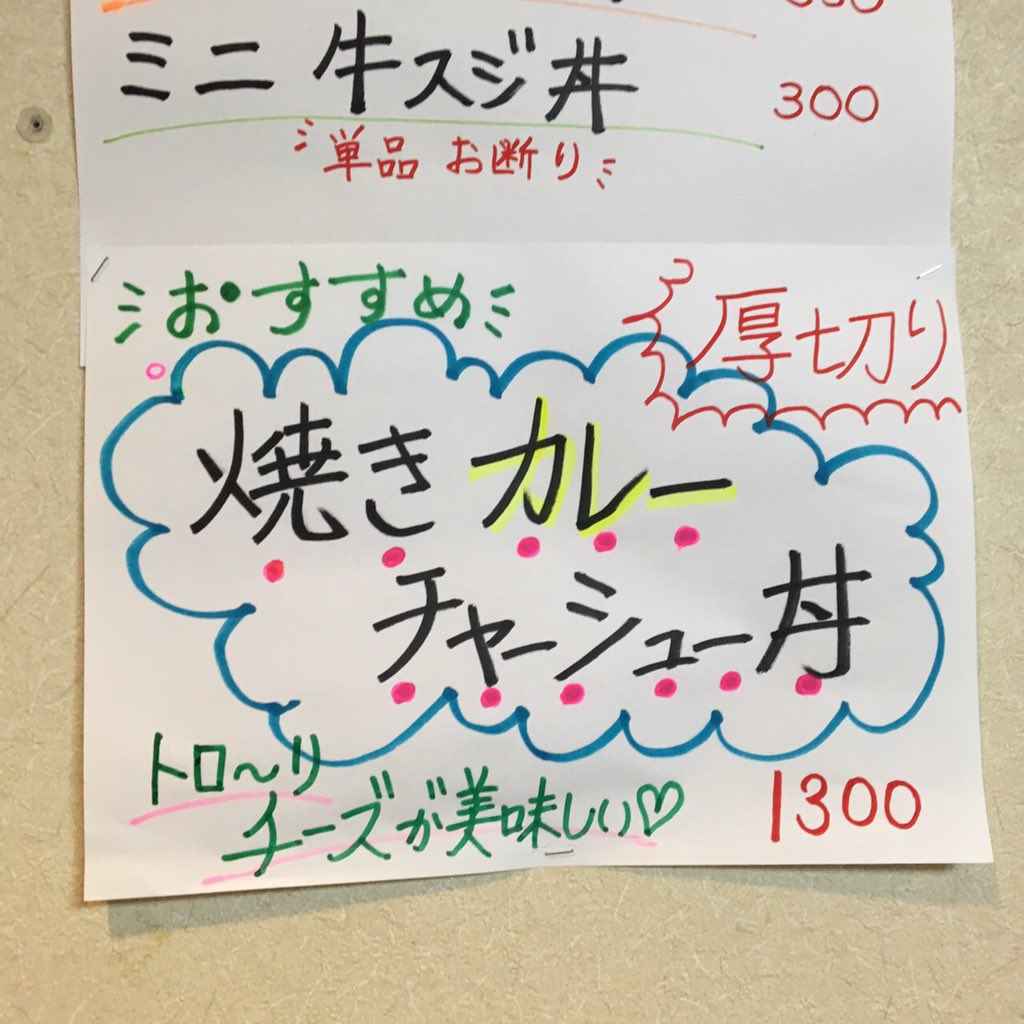 ミニ 牛スジ丼 300
単品 お断り
おすすめ
厚切り
焼きカレー
チャーシュー丼
トロ〜リ
チーズが美味しい♡
1300